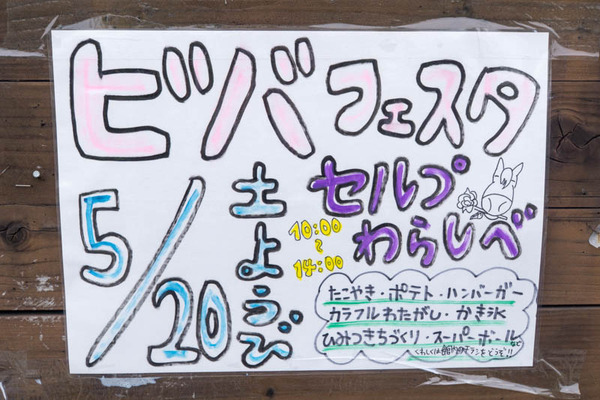 ビバフェスタ
5/20
土ようび
10:00
~
14:00
セルプ
わらしべ
たこやき・ポテト・ハンバーガー
カラフルわたがし・かき氷
ひみつきちづくり・スーパーボールなど
くわしくは館内のチラシをどうぞ!!